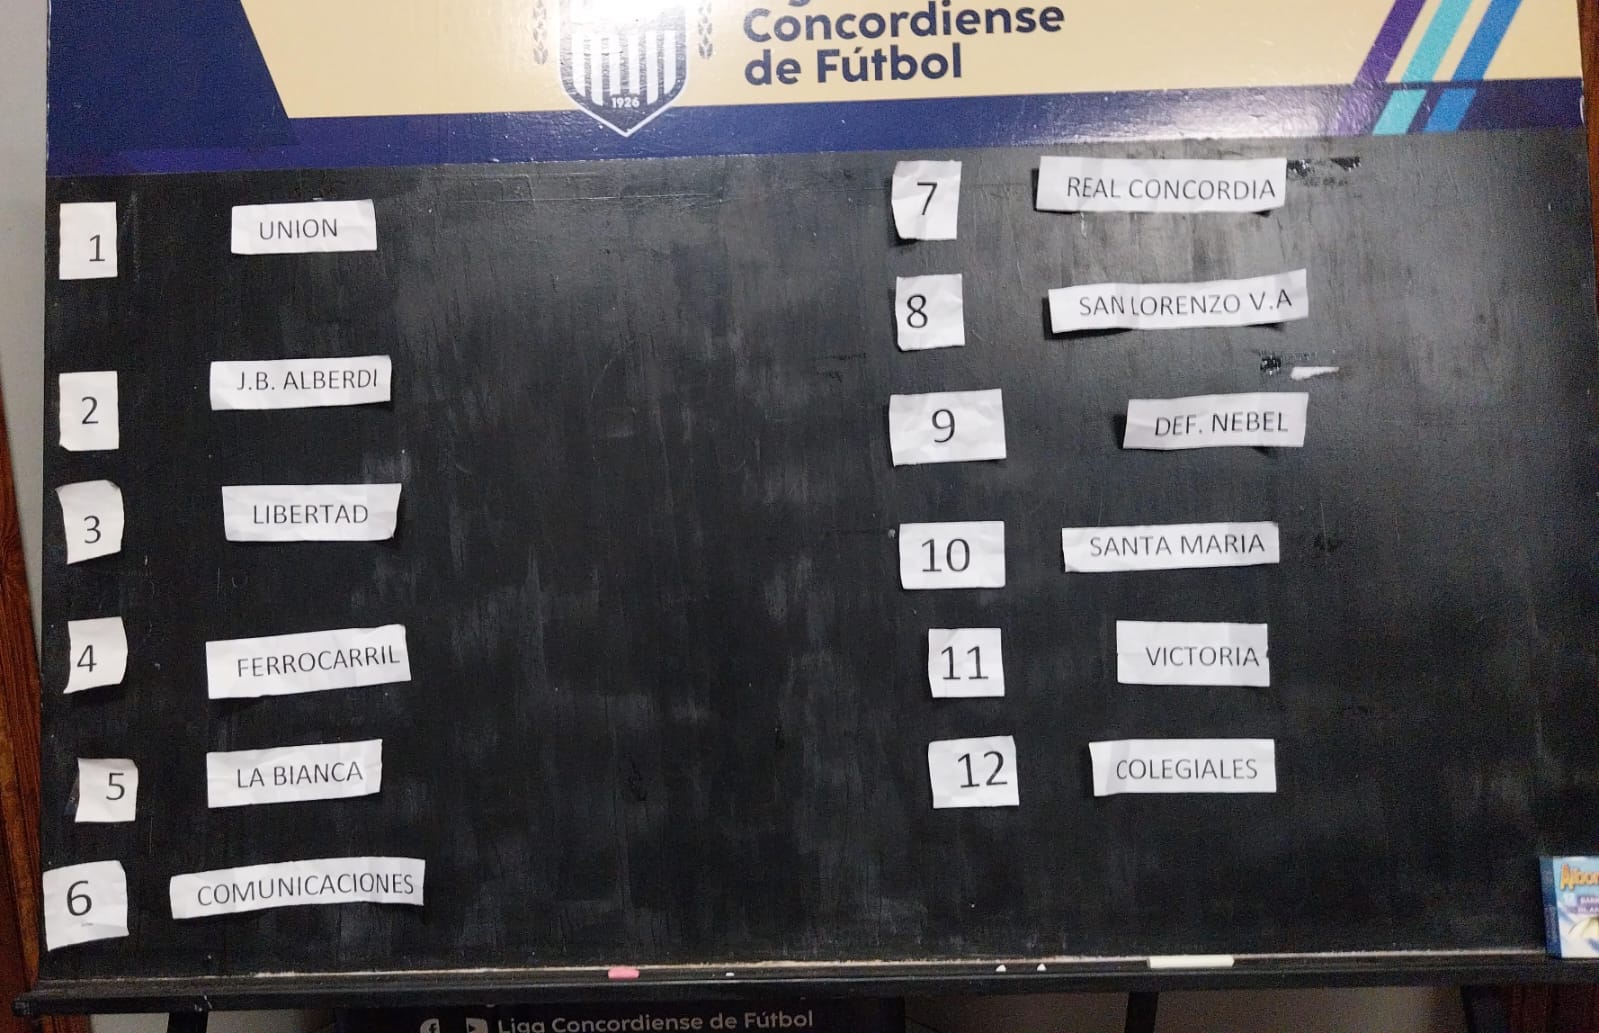 Concordiense
de Fútbol
1926
1 UNION
2 J.B. ALBERDI
3 LIBERTAD
4 FERROCARRIL
5 LA BIANCA
6 COMUNICACIONES
7 REAL CONCORDIA
8 SAN LORENZO V.A
9 DEF. NEBEL
10 SANTA MARIA
11 VICTORIA
12 COLEGIALES
Liga Concordiense de Fútbol